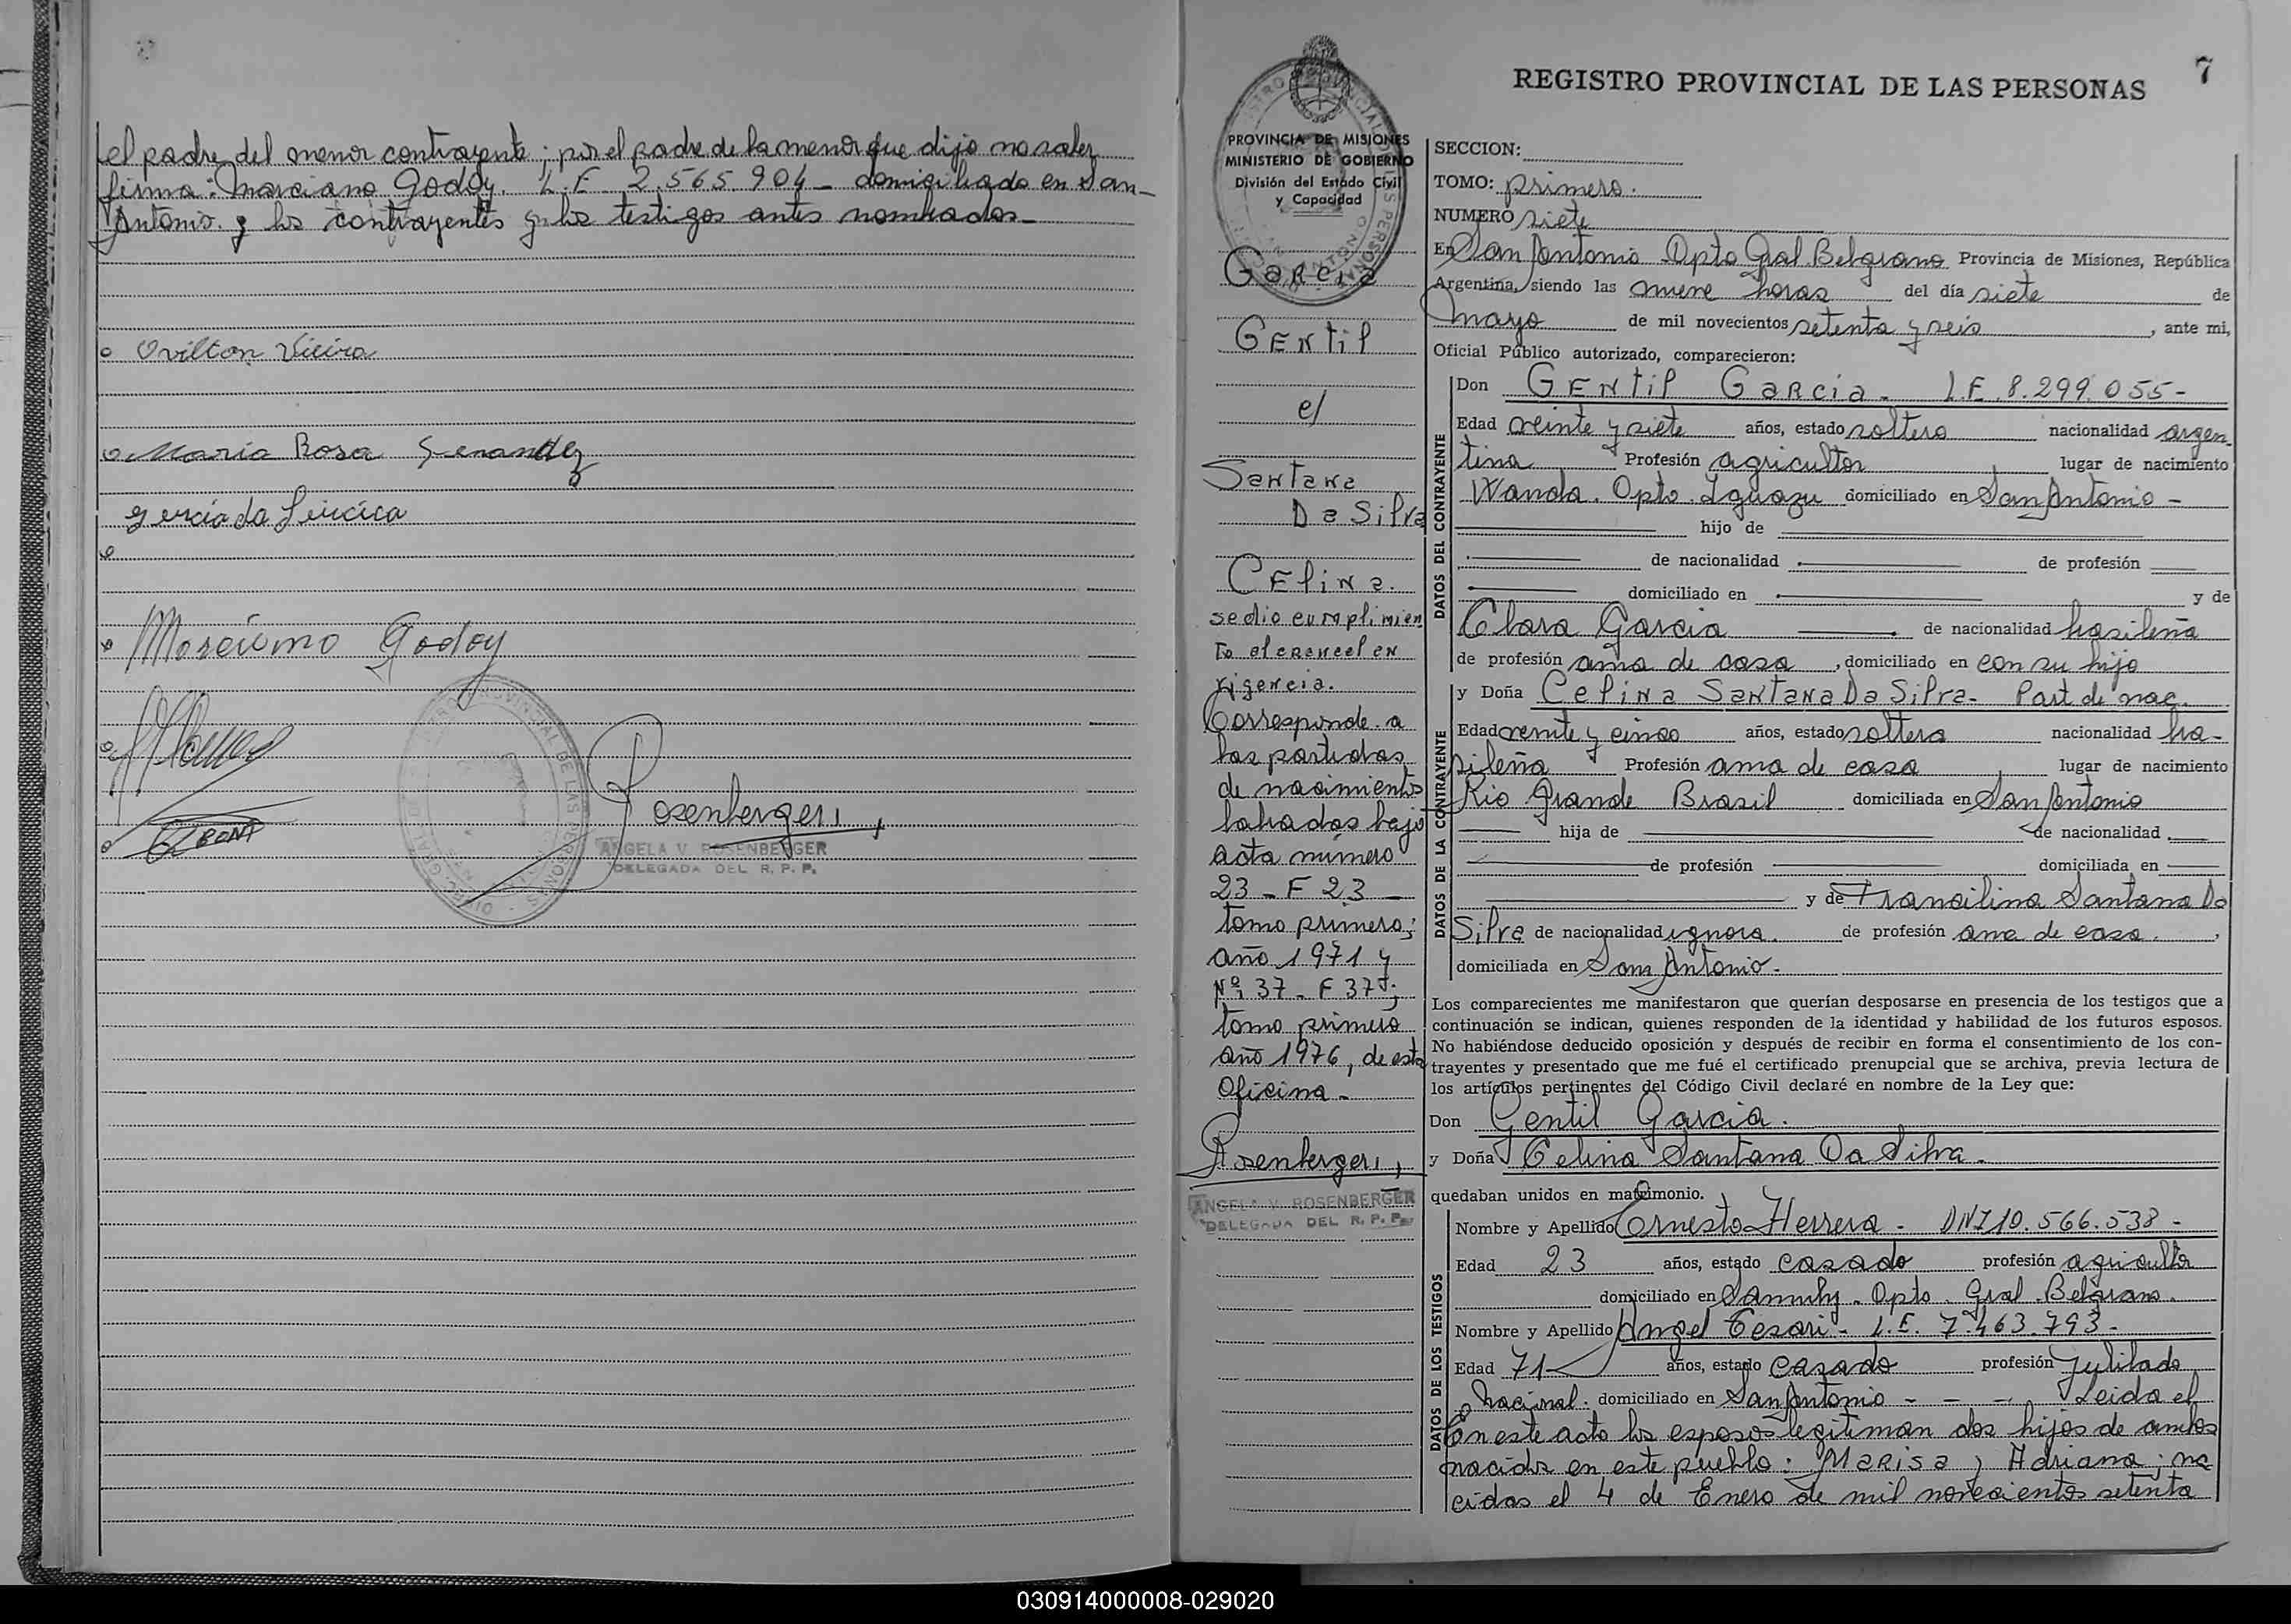 el padre del menor contrayente; por el padre de la menor que dijo no saber
firma: Marciano Godoy. L.E. 2.565.904 - domiciliado en San
Antonio. y los contrayentes y los testigos antes nombrados -
Ovilton Vieira
Maria Rosa
Marciano Godoy
Rosenberger
ANGELA V. ROSENBERGER
DELEGADA DEL R. P. P.
7
REGISTRO PROVINCIAL DE LAS PERSONAS
PROVINCIA DE MISIONES
MINISTERIO DE GOBIERNO
División del Estado Civil
y Capacidad
Garcia
Gentil
c/
Santana
Da Silva
Celina.
se dio cumplimien
to al arancel en
vigencia.
Corresponde a
las partidas
de nacimientos
labradas bajo
acta número
23 - F 23 -
tomo primero;
año 1971 y
Nº 37 - F 37;
tomo primero
año 1976, de esta
Oficina -
Rosenberger
ANGELA V. ROSENBERGER
DELEGADA DEL R. P. P.
SECCION:
TOMO: primero.
NUMERO siete
En San Antonio Dpto Gral. Belgrano Provincia de Misiones, República
Argentina, siendo las nueve horas del día siete de
mayo de mil novecientos setenta y seis, ante mi,
Oficial Público autorizado, comparecieron:
DATOS DEL CONTRAYENTE
Don Gentil Garcia - L.E. 8.299.055 -
Edad veinte y siete años, estado soltero nacionalidad argen-
tina Profesión agricultor lugar de nacimiento
Wanda. Dpto. Iguazu domiciliado en San Antonio -
hijo de
de nacionalidad de profesión
domiciliado en y de
Clara Garcia de nacionalidad brasileña
de profesión ama de casa, domiciliado en con su hijo
DATOS DE LA CONTRAYENTE
y Doña Celina Santana Da Silva - Part. de nac.
Edad veinte y cinco años, estado soltera nacionalidad bra-
sileña Profesión ama de casa lugar de nacimiento
Rio Grande Brasil domiciliada en San Antonio
hija de de nacionalidad
de profesión domiciliada en
y de Francilina Santana Da
Silva de nacionalidad ignora. de profesión ama de casa.,
domiciliada en San Antonio.
Los comparecientes me manifestaron que querían desposarse en presencia de los testigos que a
continuación se indican, quienes responden de la identidad y habilidad de los futuros esposos.
No habiéndose deducido oposición y después de recibir en forma el consentimiento de los con-
trayentes y presentado que me fué el certificado prenupcial que se archiva, previa lectura de
los artículos pertinentes del Código Civil declaré en nombre de la Ley que:
Don Gentil Garcia.
y Doña Celina Santana Da Silva -
quedaban unidos en matrimonio.
DATOS DE LOS TESTIGOS
Nombre y Apellido Ernesto Herrera - DNI 10.566.538 -
Edad 23 años, estado casado profesión agricultor
domiciliado en Dpto. Gral. Belgrano.
Nombre y Apellido Angel Cesari - L.E. 7.463.793 -
Edad 71 años, estado casado profesión jubilado
Nacional. domiciliado en San Antonio - - - Leida el
En este acto los esposos legitiman dos hijos de ambos
nacidos en este pueblo: Marisa y Adriana; na
cidas el 4 de Enero de mil novecientos setenta
030914000008-029020